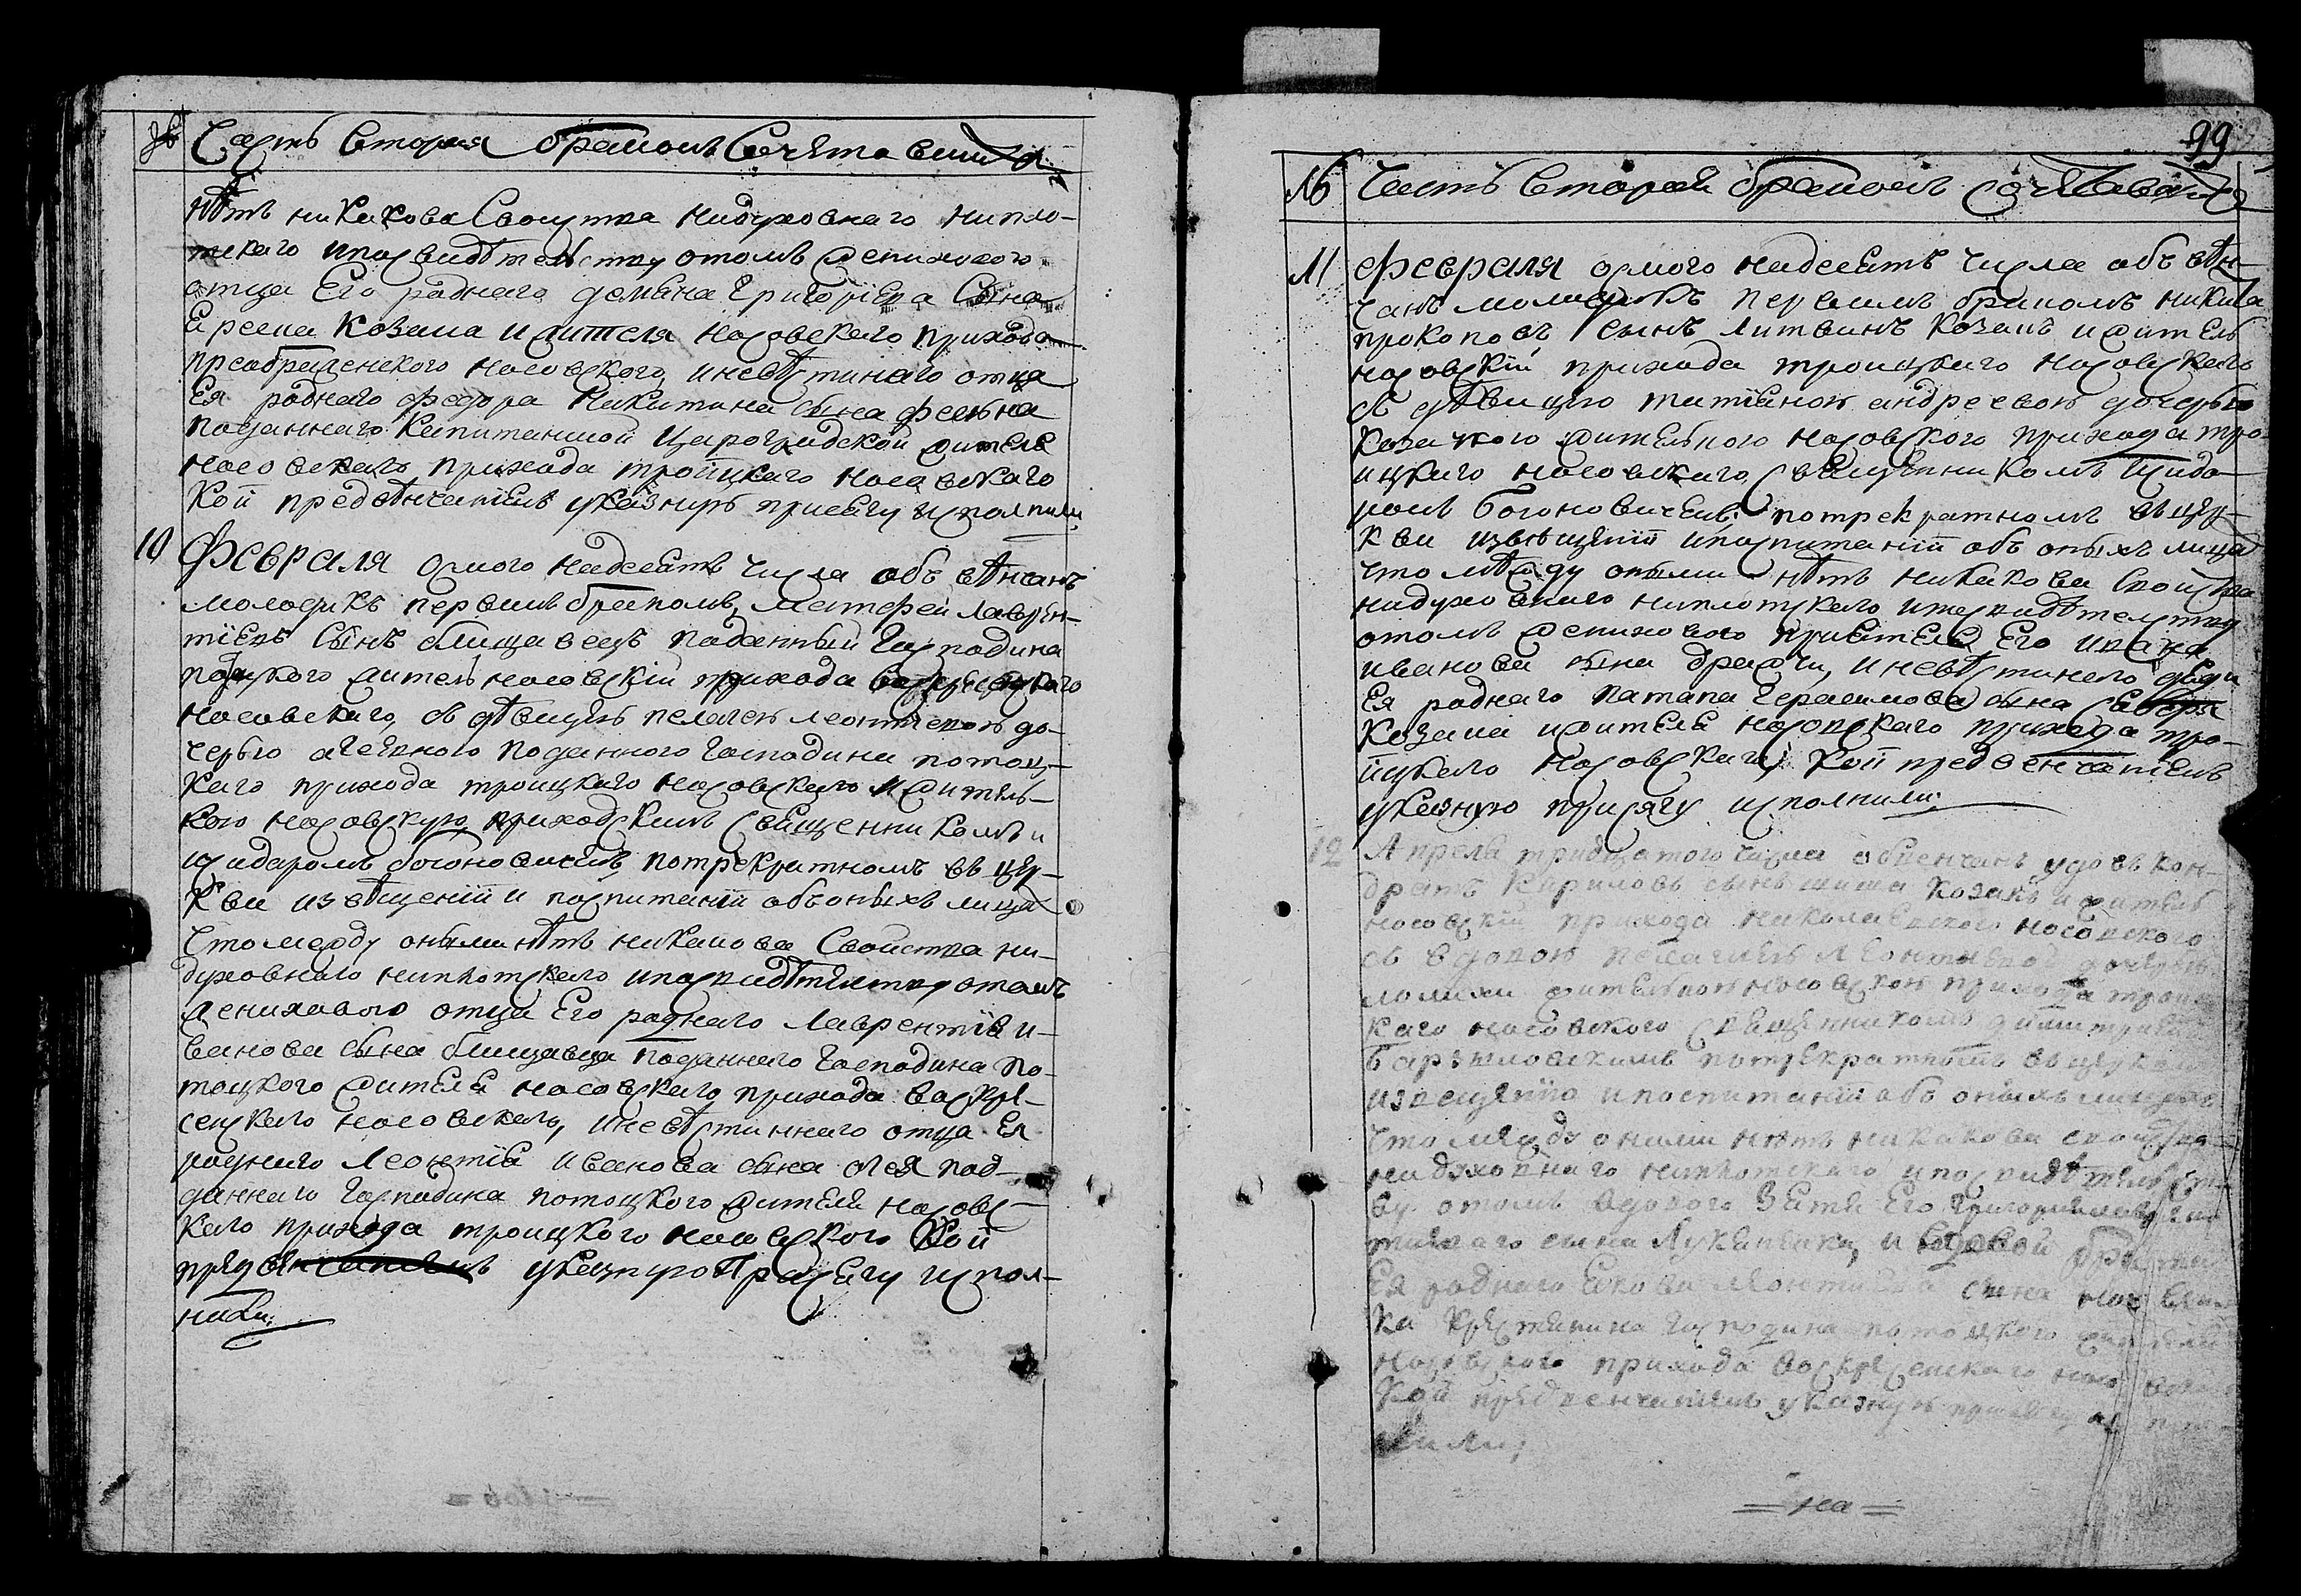 № Часть вторая бракомъ сочетавшихся
нѣтъ никакова свойства нидуховнаго нипло-
тскаго ипосвидѣтельству отомъ женихового
отца Его роднаго демяна Григорїева сына
козака ижителя носовского прихода
преображенского носовского, иневѣстинаго отца
Ея роднаго федора Никитина сына
подданнаго капитаншой Цароградской жителя
носовскаго прихода тройцкаго носовскаго
кой предвѣнчанїемъ указную присягу исполнили
10 Февраля осмого надесять числа объвѣнчанъ
молодикъ первимъ бракомъ, Матфей лаврен-
тїевъ сынъ блищавецъ подданный Господина
потоцкого житель носовскїй прихода воскресенского
носовского, съ дѣвицею пелагеею леонтїевою до-
черью подданного Господина потоц-
каго прихода троицкаго носовскаго жител-
кою носовскую, приходскимъ священникомъ и
Исидоромъ богоновичемъ, потрекратномъ въ цер-
кви извѣщенїи и поспитанїи объоныхъ лицах
чтомежду оными нѣтъ никакова свойства ни-
духовнаго ниплотскаго ипосвидѣтелству отомъ
жениховаго отца Его роднаго Лаврентїя и-
ванова сына блищавца подданнаго Господина по-
тоцкого жителя носовскаго прихода воскре-
сенскаго носовскаго, иневѣстиннаго отца Ея
роднаго Леонтїя иванова сына под-
даннаго Господина потоцкого жителя носовс-
каго прихода троицкого носовского кой
предвенчанїемъ указную Присягу испол-
нили;
99
№ Часть вторая бракомъ сочетавшихся
11 февраля осмого надесять числа объвѣн-
чанъ молодикъ первимъ бракомъ никита
прокоповъ сынъ литвинъ козакъ ижитель
носовскїй прихода троицкаго носовскаго
съ дѣвицею татїаною андреевою дочерью
козачкою жителкою носовского прихода тро-
ицкаго носовскаго, священникомъ Исидо-
ромъ богоновичемъ, потрекратномъ въ цер-
кви извѣщенїи ипоспитанїи объ оныхъ лицах
что между оными нѣтъ никакова свойства
нидуховнаго ниплотскаго ипосвидѣтелству
отомъ женихового прїятеля Его ивана
иванова сына драгчи, иневѣстинаго дяди
Ея роднаго патапа Герасимова сына
козака ижителя носовскаго прихода тро-
ицкаго носовскаго, кой предвенчанїемъ
указную присягу исполнили;
12 Апреля тридцатого числа обвенчанъ удовъ кон-
дратъ кириловъ сынъ шиша козакъ ижитель
носовскїй прихода николаевского носовского
съ вдовою пелагиею леонтиевою дочерью
жителкою носовскою прихода троиц-
каго носовского священникомъ димитриемъ
потрекратномъ въ церкви
извещенїю ипоспитанїи объ оныхъ лицахъ
что между оними нѣтъ никакова свойства
нидуховнаго ниплотскаго ипосвидѣтельст-
ву отомъ вдового Зятя Его Григория
сына Лукьненка, и вдовой брата
Ея роднаго леонтиева сына
крестянина Господина потоцкого жителя
носовского прихода воскресенскаго
кой предвенчанїемъ указную присягу испол-
нили;
= на =